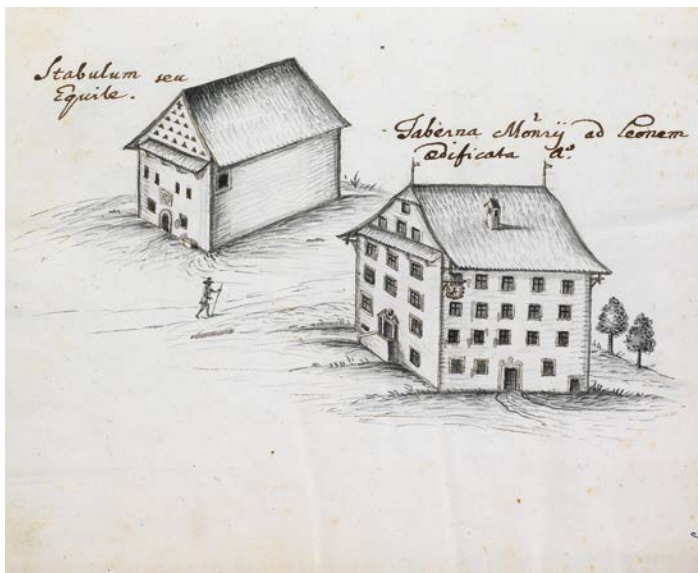 Stabulum seu
Equile.
Taberna Monrÿ ad Leonem
edificata Aº.